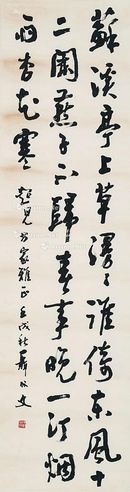 蘇溪亭上草漫漫誰倚東風十
二闌燕子不歸春事晚一汀烟
雨杏花寒